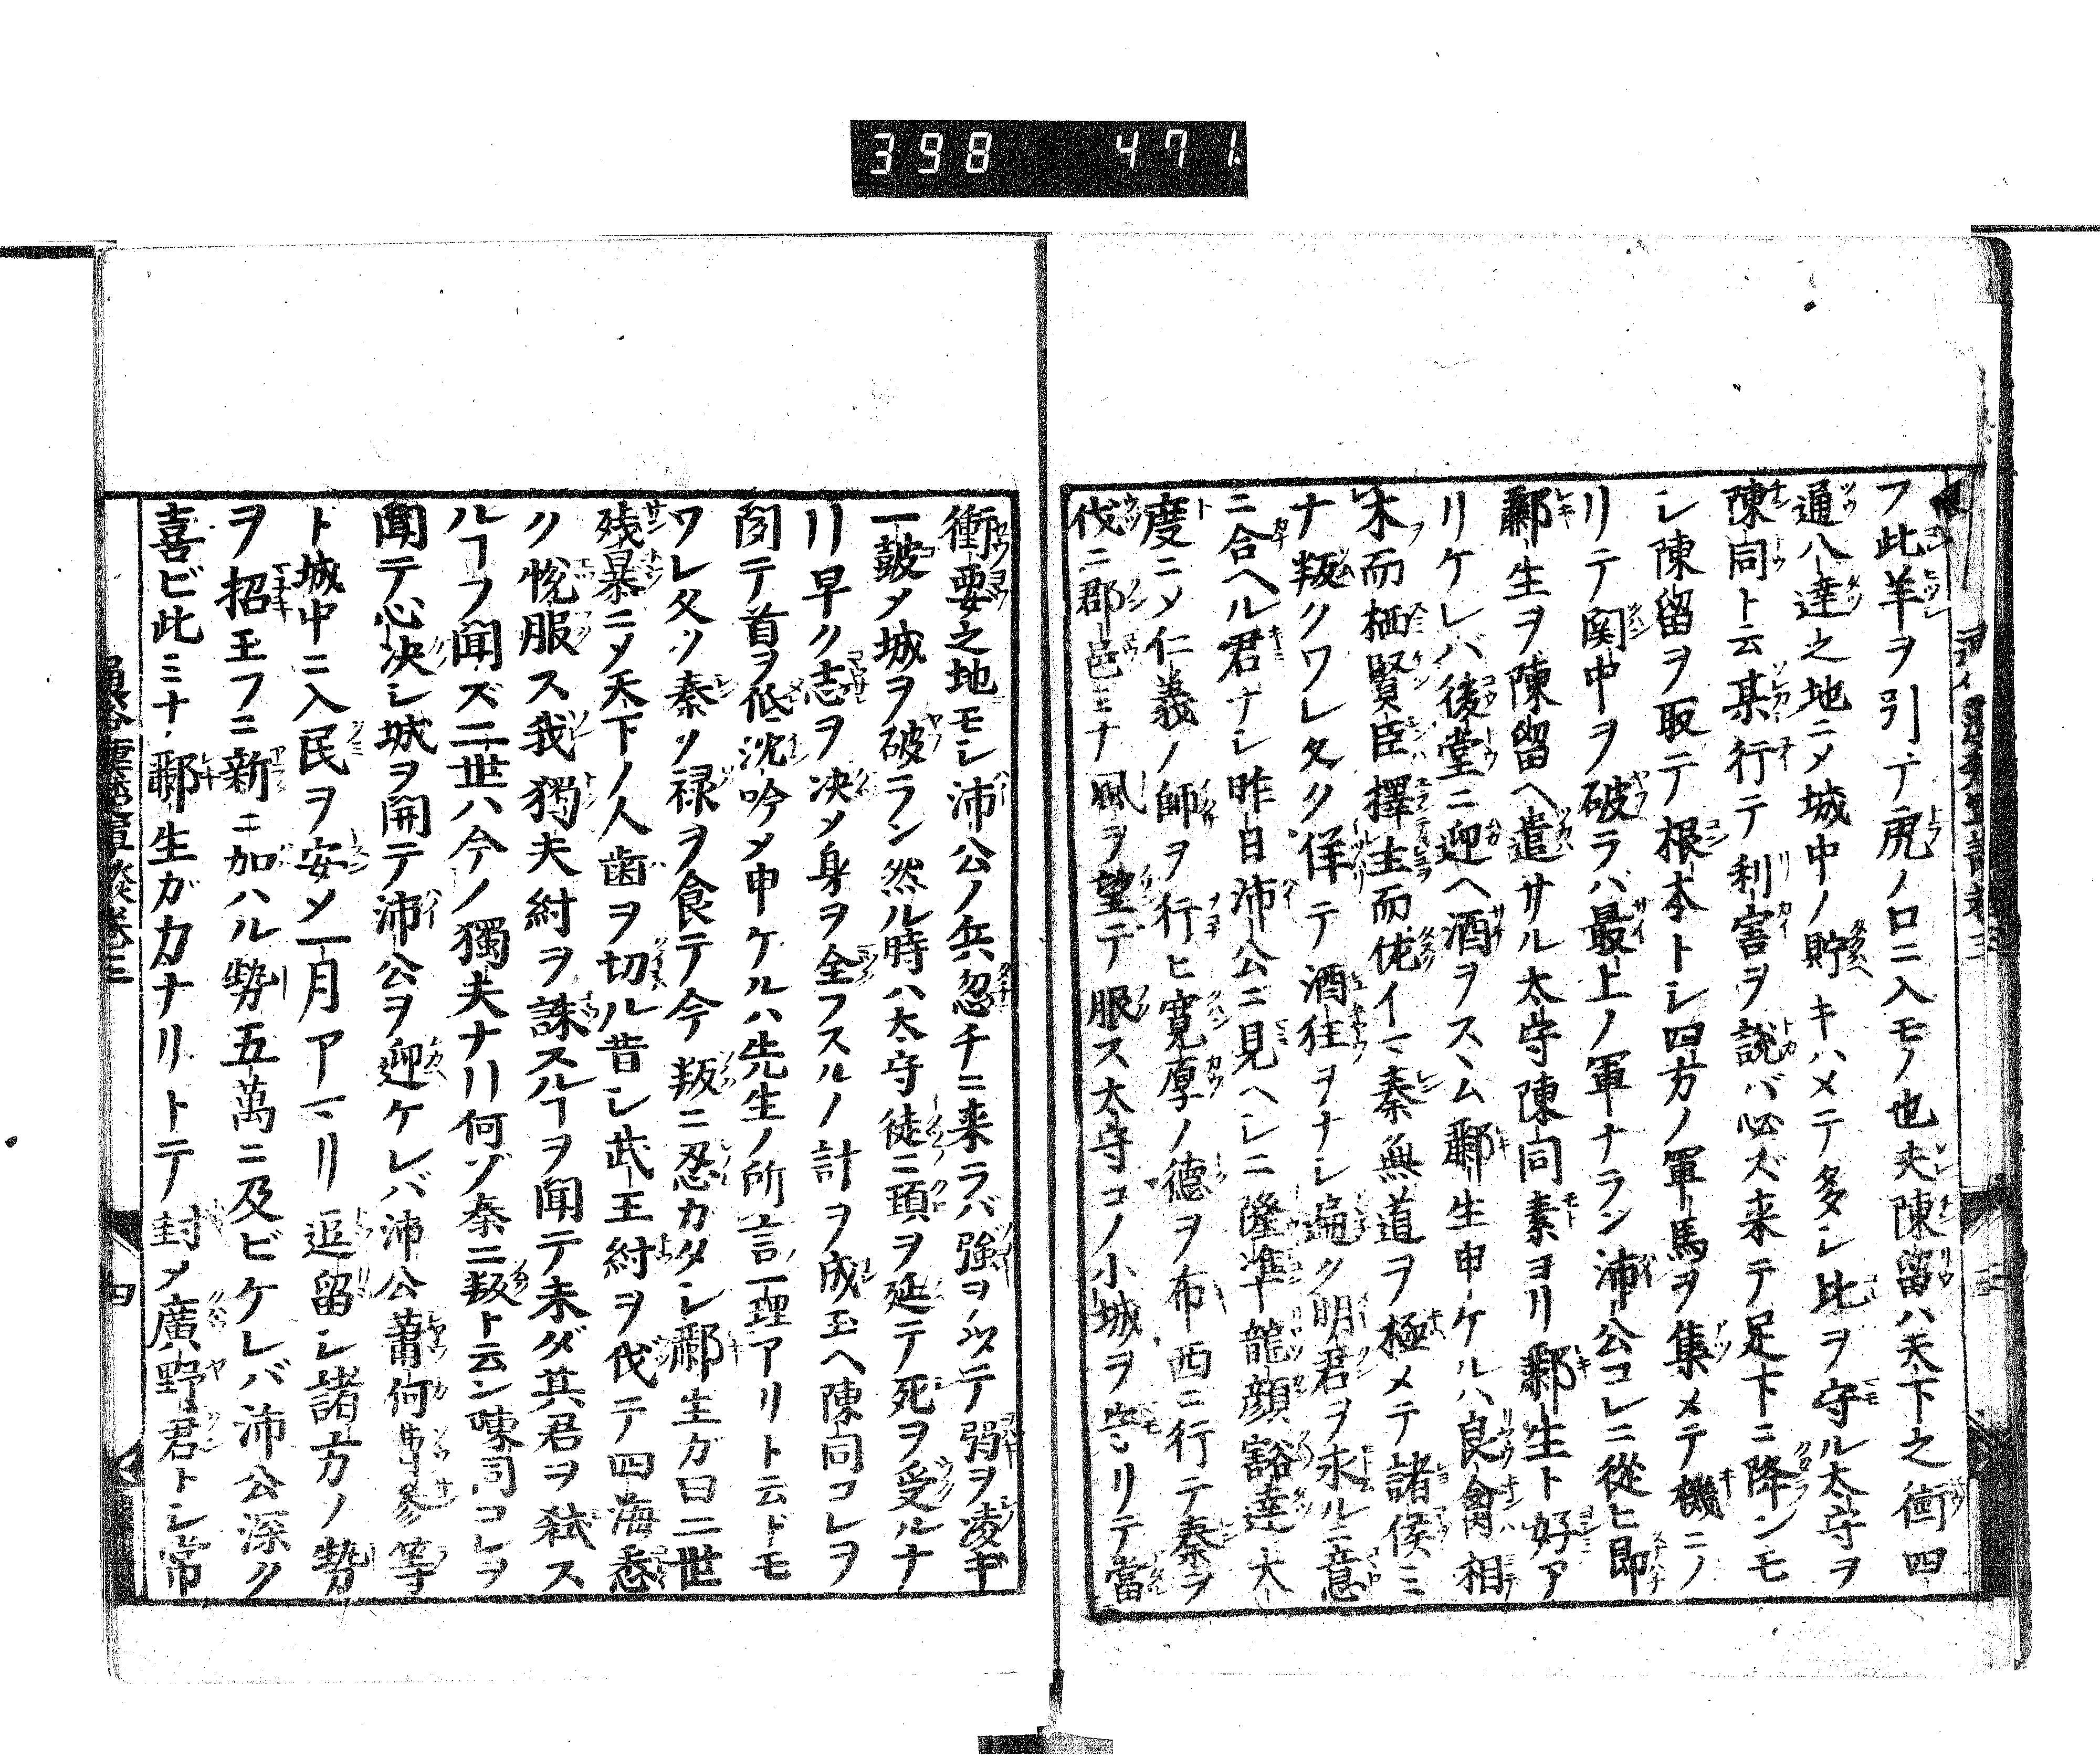 398 471
フ此羊ヲ引テ虎ノ口ニ入モノ也夫陳留ハ天下之衝四
通八達之地ニメ城中ノ貯キハメテ多シ比ヲ守ル太守ヲ
陳同ト云某行テ利害ヲ説バ必ズ来テ足下ニ降ンモ
シ陳留ヲ取テ根本トシ四方ノ軍馬ヲ集メテ機ニノ
リテ関中ヲ破ラバ最上ノ軍ナラン沛公コレニ從ヒ即
酈生ヲ陳留ヘ遣サル太守陳同素ヨリ酈生ト好ア
リケレバ後堂ニ迎ヘ酒ヲスヽム酈生申ケルハ良禽相
木而栖賢臣擇主而佐イマ秦無道ヲ極メテ諸侯ミ
ナ叛クワレ久ク佯テ酒狂ヲナシ遍ク明君ヲ求ルニ意
ニ合ヘル君ナシ昨日沛公ニ見ヘシニ隆準龍顔豁達大
度ニメ仁義ノ師ヲ行ヒ寛厚ノ德ヲ布西ニ行テ秦ヲ
伐ニ郡邑ミナ風ヲ望デ服ス太守コノ小城ヲ守リテ當
衝要之地モシ沛公ノ兵忽チニ来ラバ強ヲ以テ弱ヲ凌ギ
一皷メ城ヲ破ラン然ル時ハ太守徒ニ頭ヲ延テ死ヲ受ルナ
リ早ク志ヲ决メ身ヲ全フスルノ計ヲ成玉ヘ陳同コレヲ
聞テ首ヲ低沈吟メ申ケルハ先生ノ所言一理アリト云ドモ
ワレ久ク秦ノ禄ヲ食テ今叛ニ忍カタシ酈生ガ曰二世
残暴ニメ天下ノ人歯ヲ切ル昔シ武王紂ヲ伐テ四海悉
ク悦服ス我獨夫紂ヲ誅スルヿヲ聞テ未ダ其君ヲ弑ス
ルヿフ聞ズ二世ハ今ノ獨夫ナリ何ゾ秦ニ叛ト云ン陳同コレヲ
聞テ心决シ城ヲ開テ沛公ヲ迎ケレバ沛公蕭何曹参等
ト城中ニ入民ヲ安メ一月アマリ逗留シ諸方ノ勢
ヲ招玉フニ新ニ加ハル勢五萬ニ及ビケレバ沛公深ク
喜ビ此ミナ酈生ガ力ナリトテ封メ廣野君トシ常
四